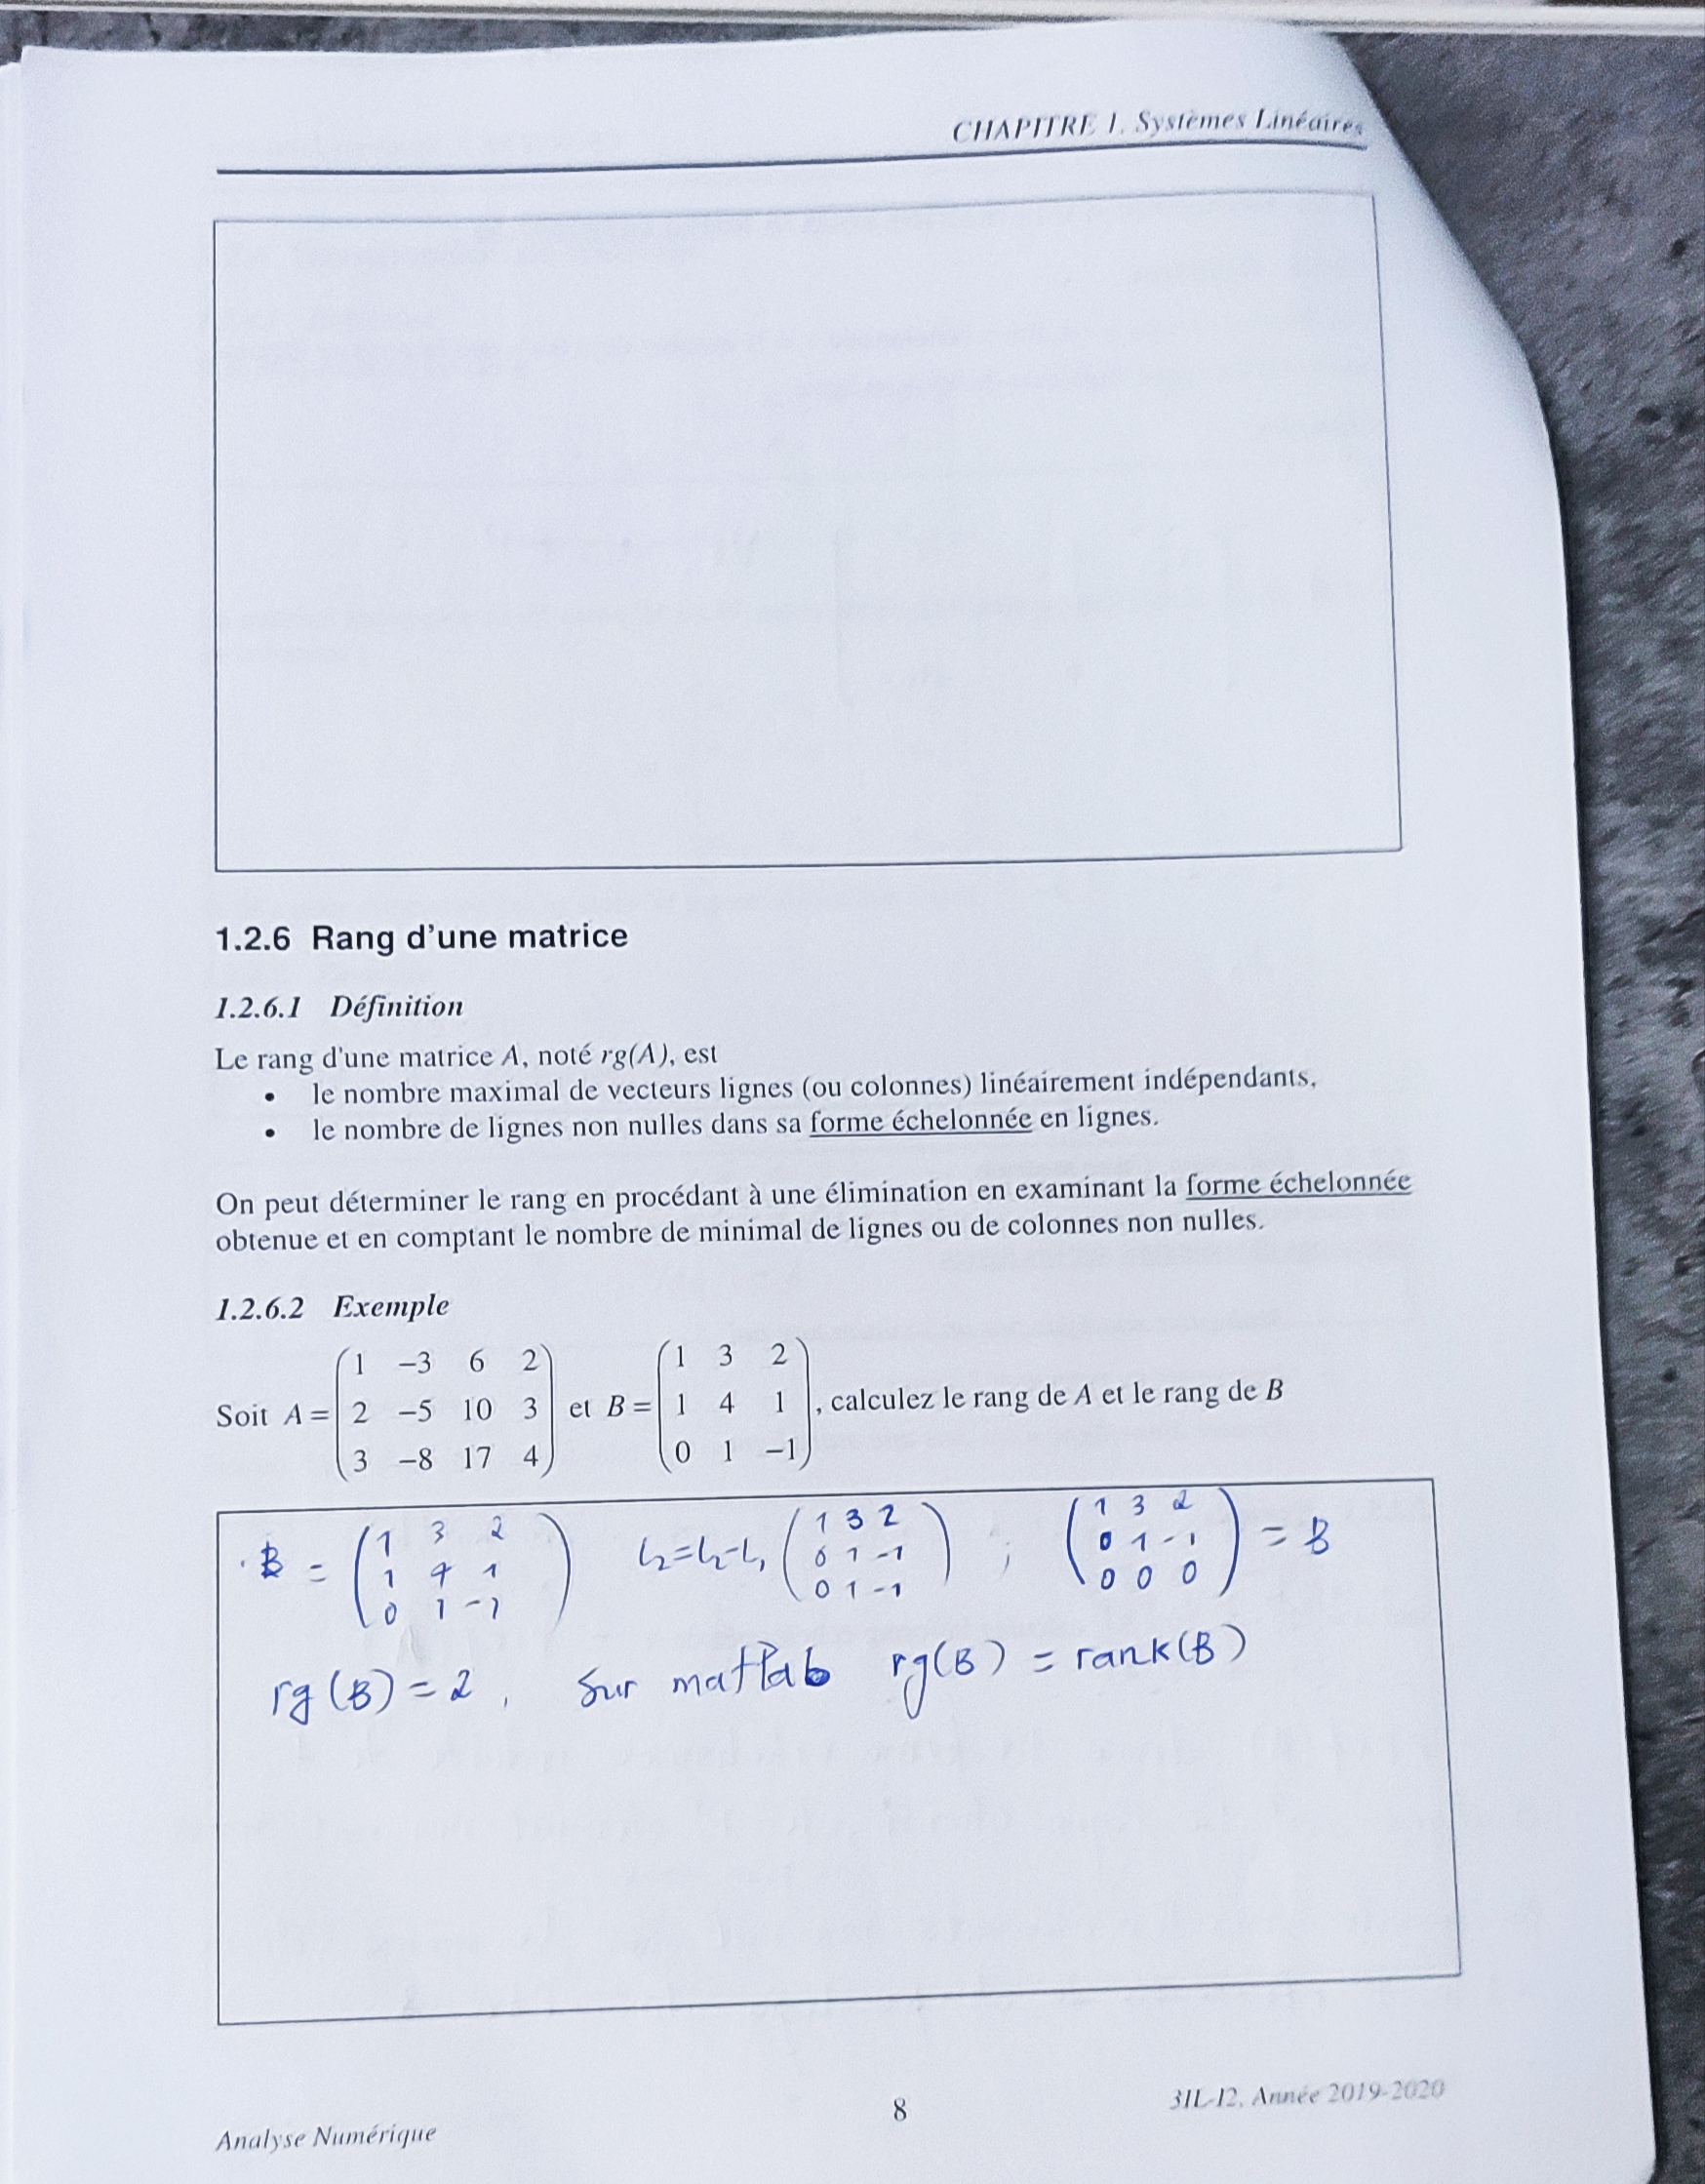 CHAPITRE 1. Systèmes Linéaires
1.2.6 Rang d'une matrice
1.2.6.1 Définition
Le rang d'une matrice A, noté rg(A), est
• le nombre maximal de vecteurs lignes (ou colonnes) linéairement indépendants,
• le nombre de lignes non nulles dans sa forme échelonnée en lignes.
On peut déterminer le rang en procédant à une élimination en examinant la forme échelonnée
obtenue et en comptant le nombre de minimal de lignes ou de colonnes non nulles.
1.2.6.2 Exemple
1 −3 6 2 1 3 2
Soit A = 2 −5 10 3 et B = 1 4 1 , calculez le rang de A et le rang de B
3 −8 17 4 0 1 −1
1 3 2 1 3 2 1 3 2
B = 1 4 1 L2=L2-L1 0 1 -1 ; 0 1 -1 = B
0 1 -1 0 1 -1 0 0 0
rg(B) = 2, Sur matlab rg(B) = rank(B)
Analyse Numérique 8 3IL-I2, Année 2019-2020